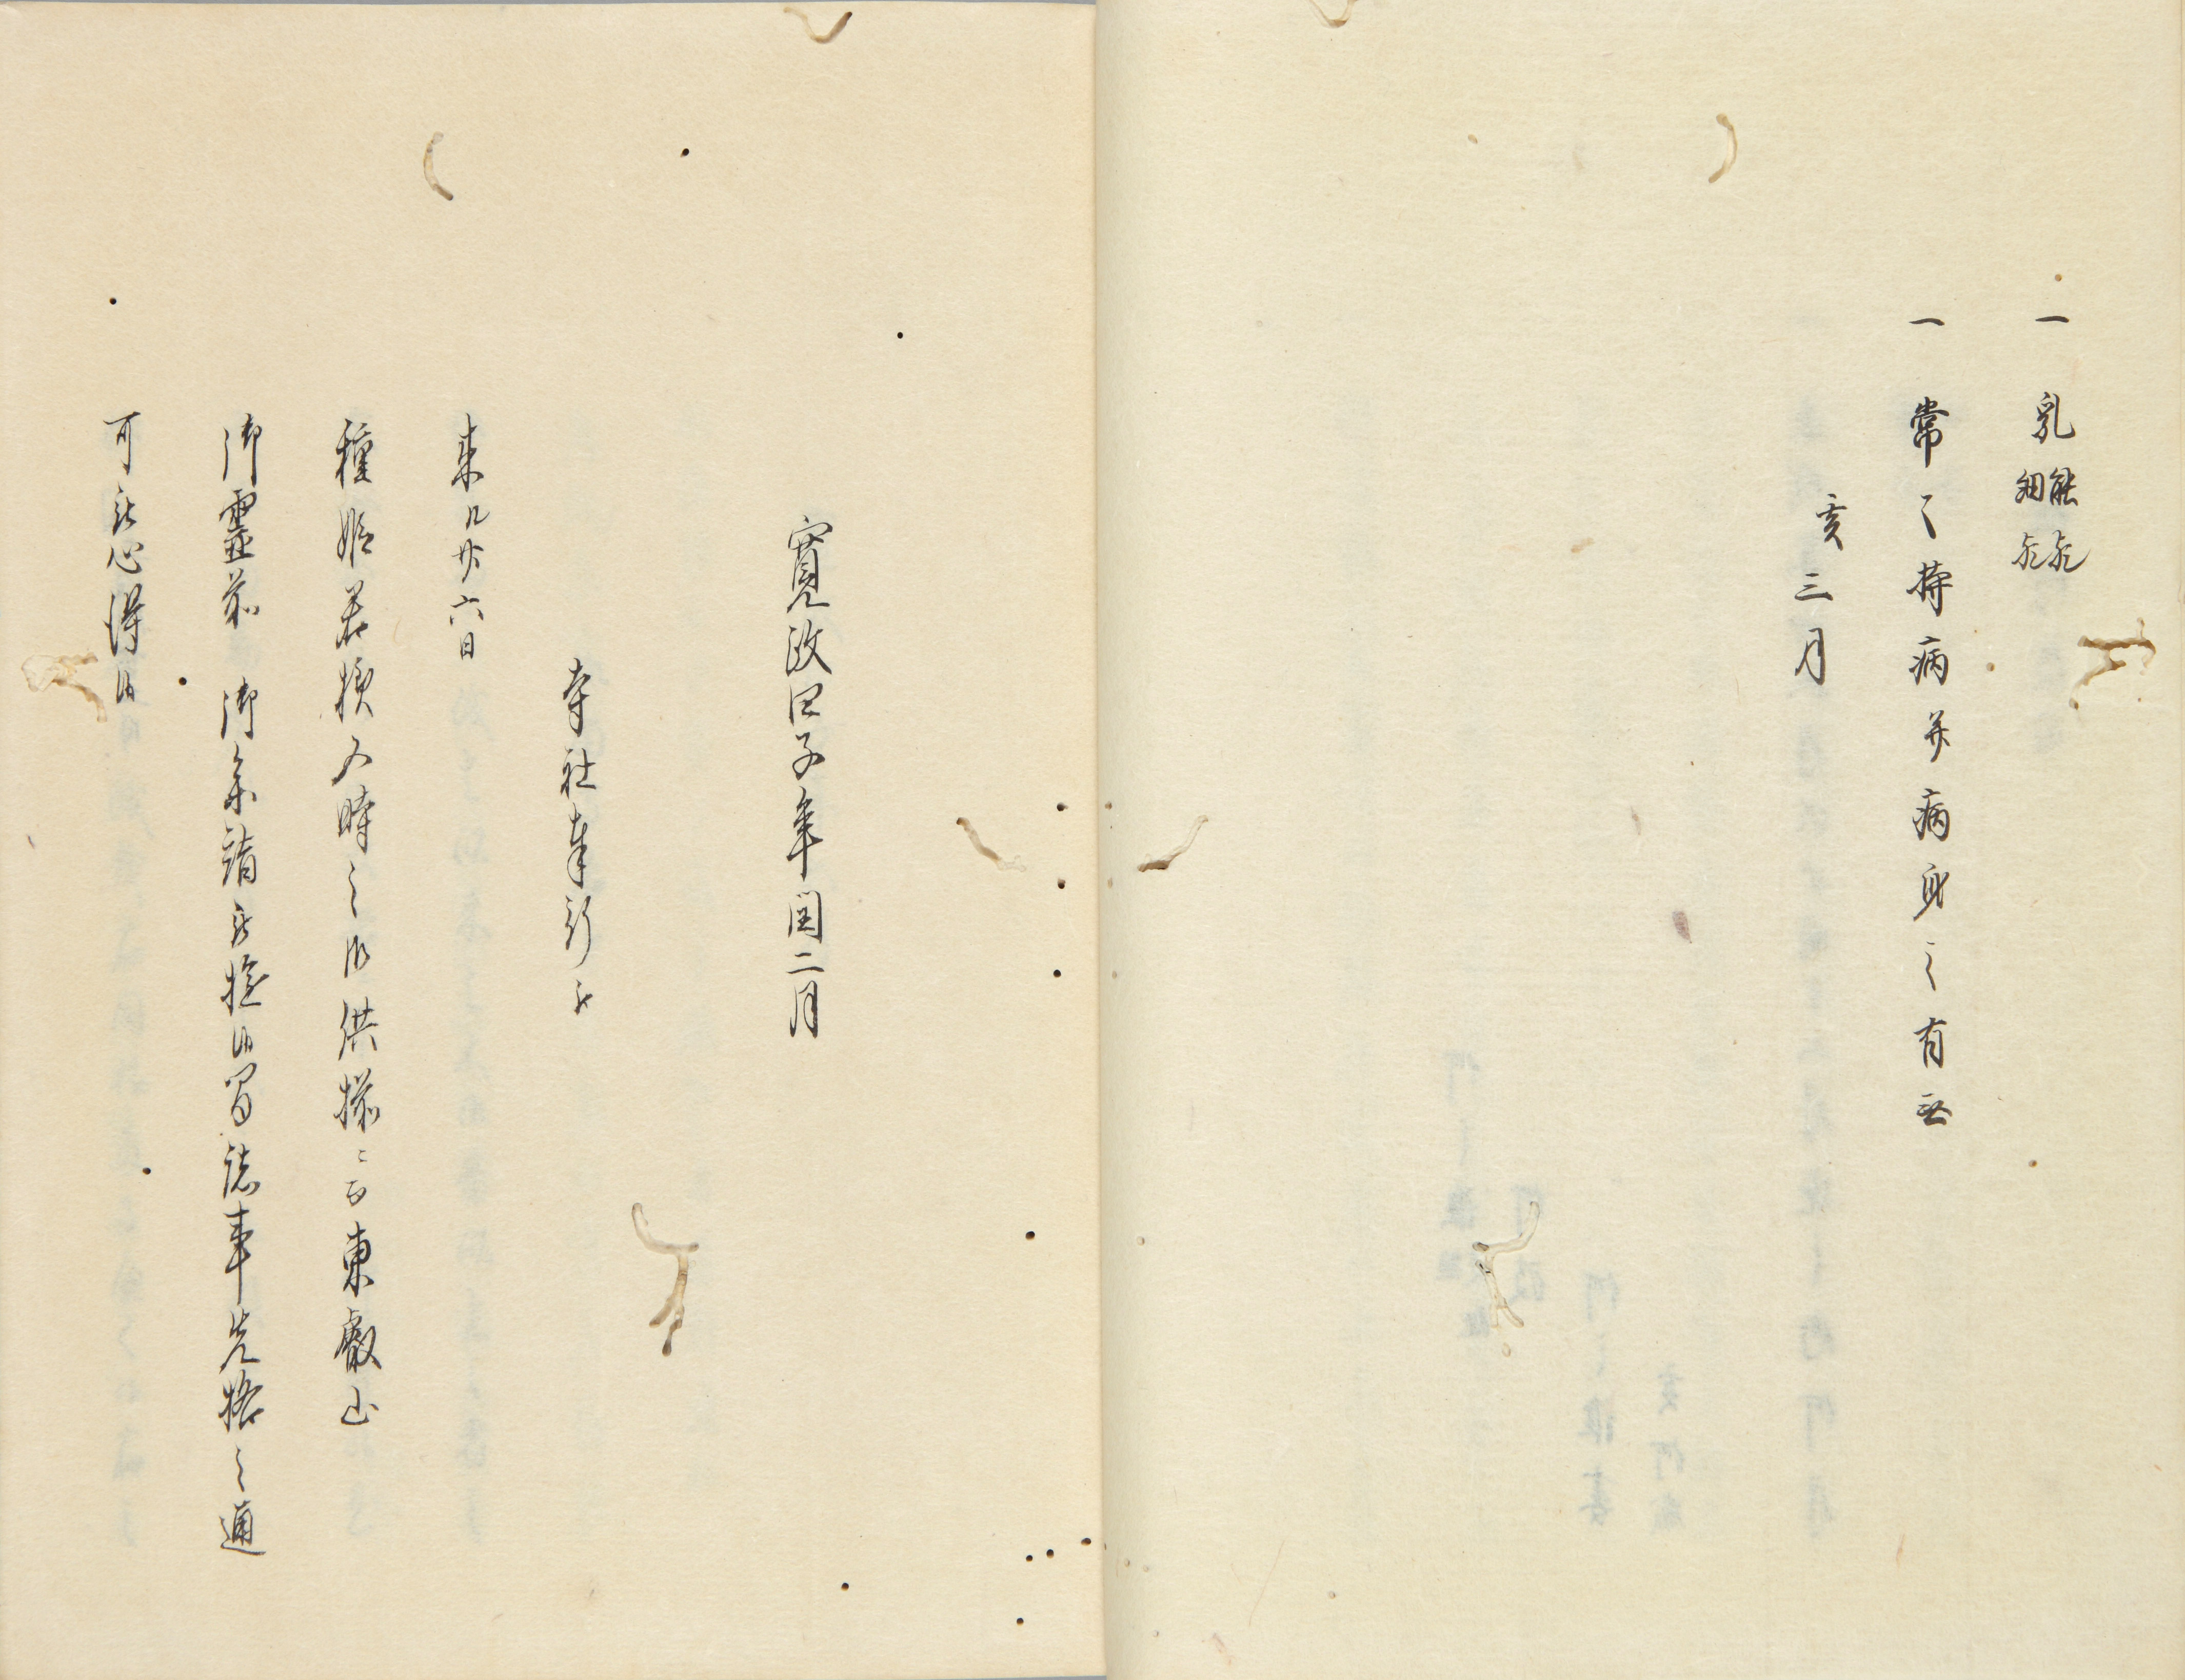 一 乳 能出 細出
一 常々持病并病身之有無
亥三月
寛政四子年閏二月
寺社奉行え
来ル廿六日
種姫君様五時之御供揃ニ而東叡山
御霊前 御参詣被成候間諸事先格之通
可被心得候